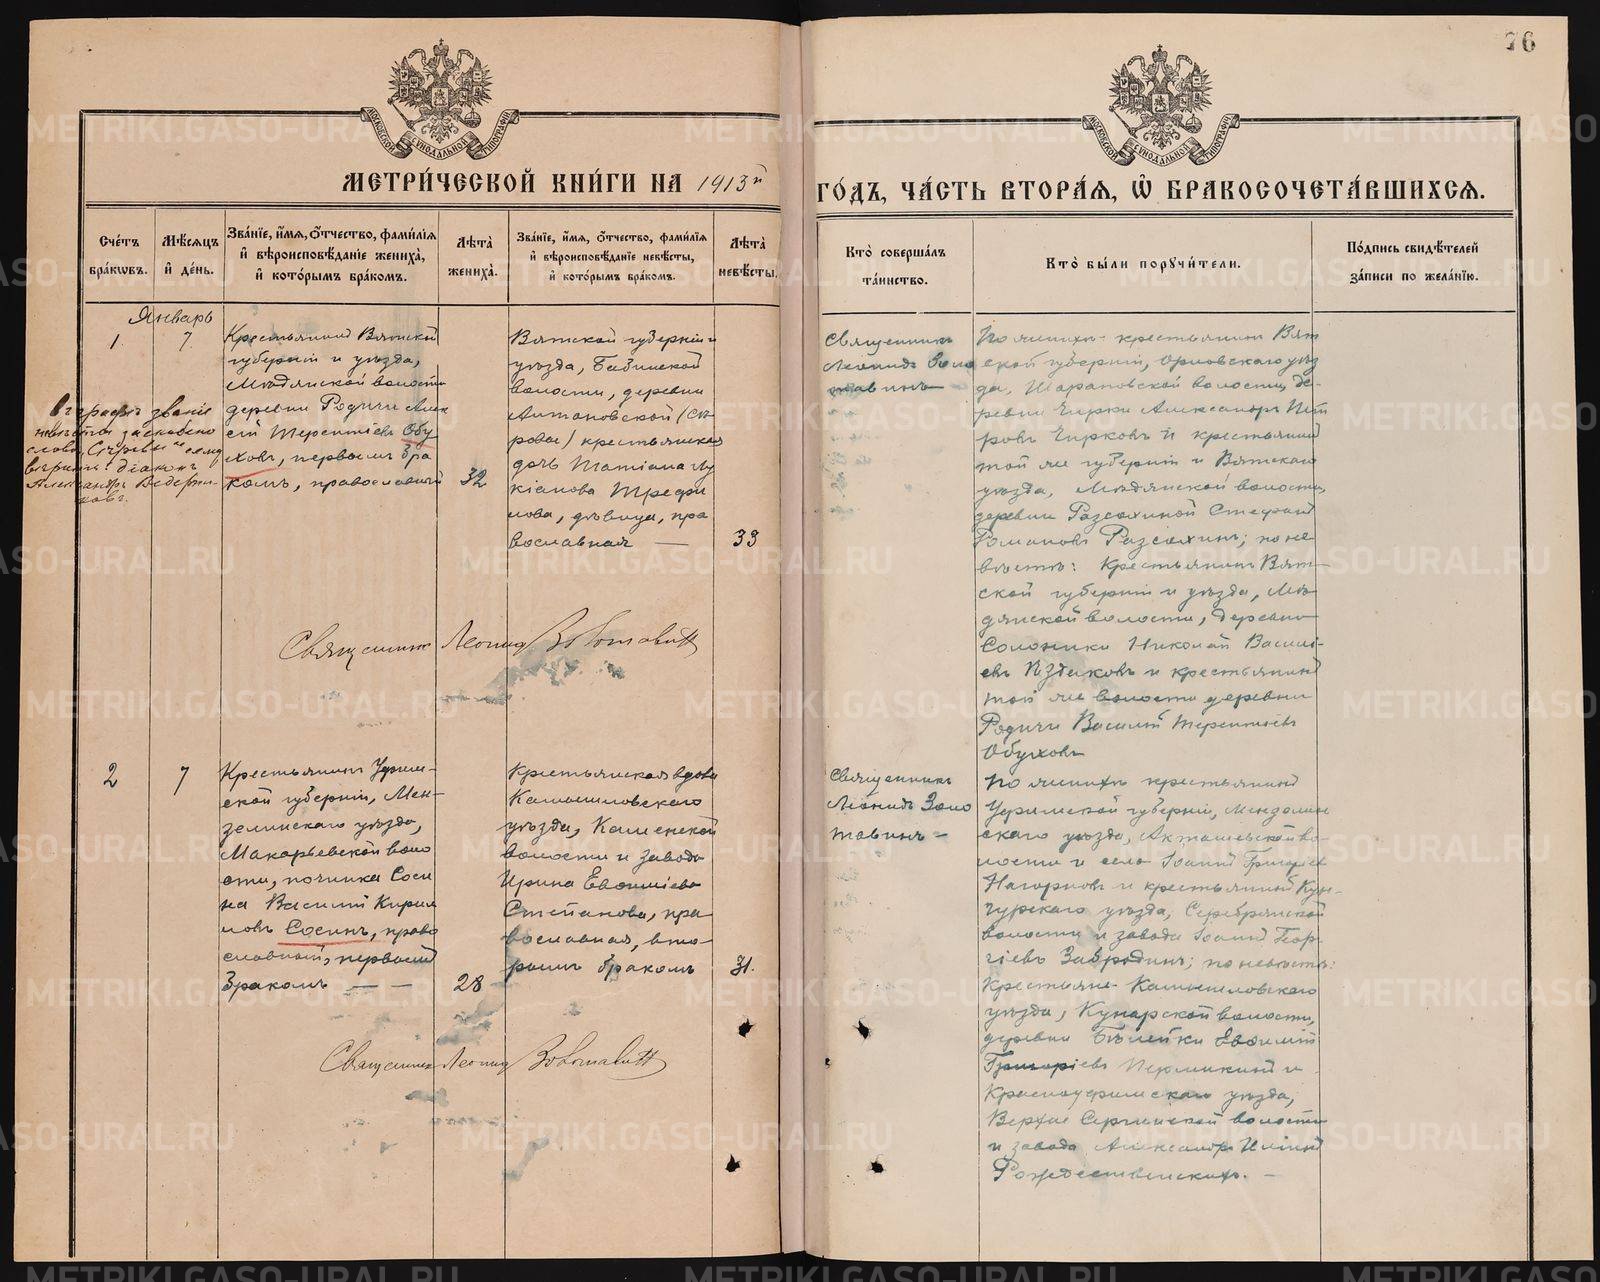 76
МОСКОВСКОЙ СѴНОДАЛЬНОЙ ТИПОГРАФІИ
МОСКОВСКОЙ СѴНОДАЛЬНОЙ ТИПОГРАФІИ
МЕТРИ́ЧЕСКОЙ КНИ́ГИ НА 1913й
ГО́ДЪ, ЧА́СТЬ ВТОРА́Я, Ѿ БРАКОСОЧЕТА́ВШИХСЯ.
Сче́тъ бра́кѡвъ.
Мѣ́сяцъ и҆ де́нь.
Зва́нїе, и҆́мя, ѻ҆́тчество, фами́лїя и҆ вѣроисповѣ́данїе жениха̀, и҆ кото́рымъ бра́комъ.
Лѣта̀ жениха̀.
Зва́нїе, и҆́мя, ѻ҆́тчество, фами́лїя и҆ вѣроисповѣ́данїе невѣ́сты, и҆ кото́рымъ бра́комъ.
Лѣта̀ невѣ́сты.
Кто̀ соверша́лъ та́инство.
Кто̀ бы́ли порꙋчи́тели.
По́дпись свидѣ́телей за́писи по жела́нїю.
Январь
1.
7
Крестьянинъ Вятской
губерніи и уѣзда,
Мѣдянской волости
деревни Родичи Алек
сѣй Терентіевъ Обу
ховъ, первымъ бра
комъ, православный
32
Вятской губерніи и
уѣзда, Бабинской
волости, деревни
Антоновской (Сы
рово) крестьянская
дочь Татіана Лу
кіанова Трефи
лова, дѣвица, пра
вославная —
33
Въ графѣ званіе
невѣсты заскоблено
слово
вѣрить діаконъ
Александръ Ведерни-
ковъ.
Священникъ
Леонидъ Золо
тавинъ
По женихѣ: крестьянинъ Вят
ской губерніи, Орловскаго уѣз
да, Шарановской волости, де-
ревни Чирки Александръ Пет
ровъ Чирковъ и крестьянинъ
той же губерніи и Вятскаго
уѣзда, Мѣдянской волости,
деревни Разсохиной Стефанъ
Романовъ Разсохинъ; по не
вѣстѣ: Крестьянинъ Вят-
ской губерніи и уѣзда, Мѣ
дянской волости, деревни
Солоники Николай Василі-
евъ и крестьянинъ
той же волости деревни
Родичи Василій Терентіевъ
Обуховъ
Священникъ Леонид Золотавинъ
2
7
Крестьянинъ Уфим-
ской губерніи, Мен-
зелинскаго уѣзда,
Макарьевской воло
сти, починка Соси
на Василій Кирил
ловъ Сосинъ, право
славный, первымъ
бракомъ — —
28
Крестьянская вдова
Камышловскаго
уѣзда, Каменской
волости и завода
Ирина Евфиміева
Степанова, пра
вославная, вто-
рымъ бракомъ
31.
Священникъ
Леонидъ Золо
тавинъ —
По женихѣ крестьянинъ
Уфимской губерніи, Мензелин
скаго уѣзда, Акташевской во
лости и села Іоаннъ Григоріев
Нагорновъ и крестьянинъ Кун-
гурскаго уѣзда, Серебрянской
волости и завода Іоаннъ Геор-
гіевъ Забродинъ; по невѣстѣ:
Крестьяне Камышловскаго
уѣзда, Кунарской волости,
деревни Бѣлейки Евфимій
Григоріевъ Пермикинъ и
Красноуфимскаго уѣзда,
Верхне Сергинской волости
и завода Александръ Ильинъ
Рождественскихъ. —
Священник Леонид Золотавинъ